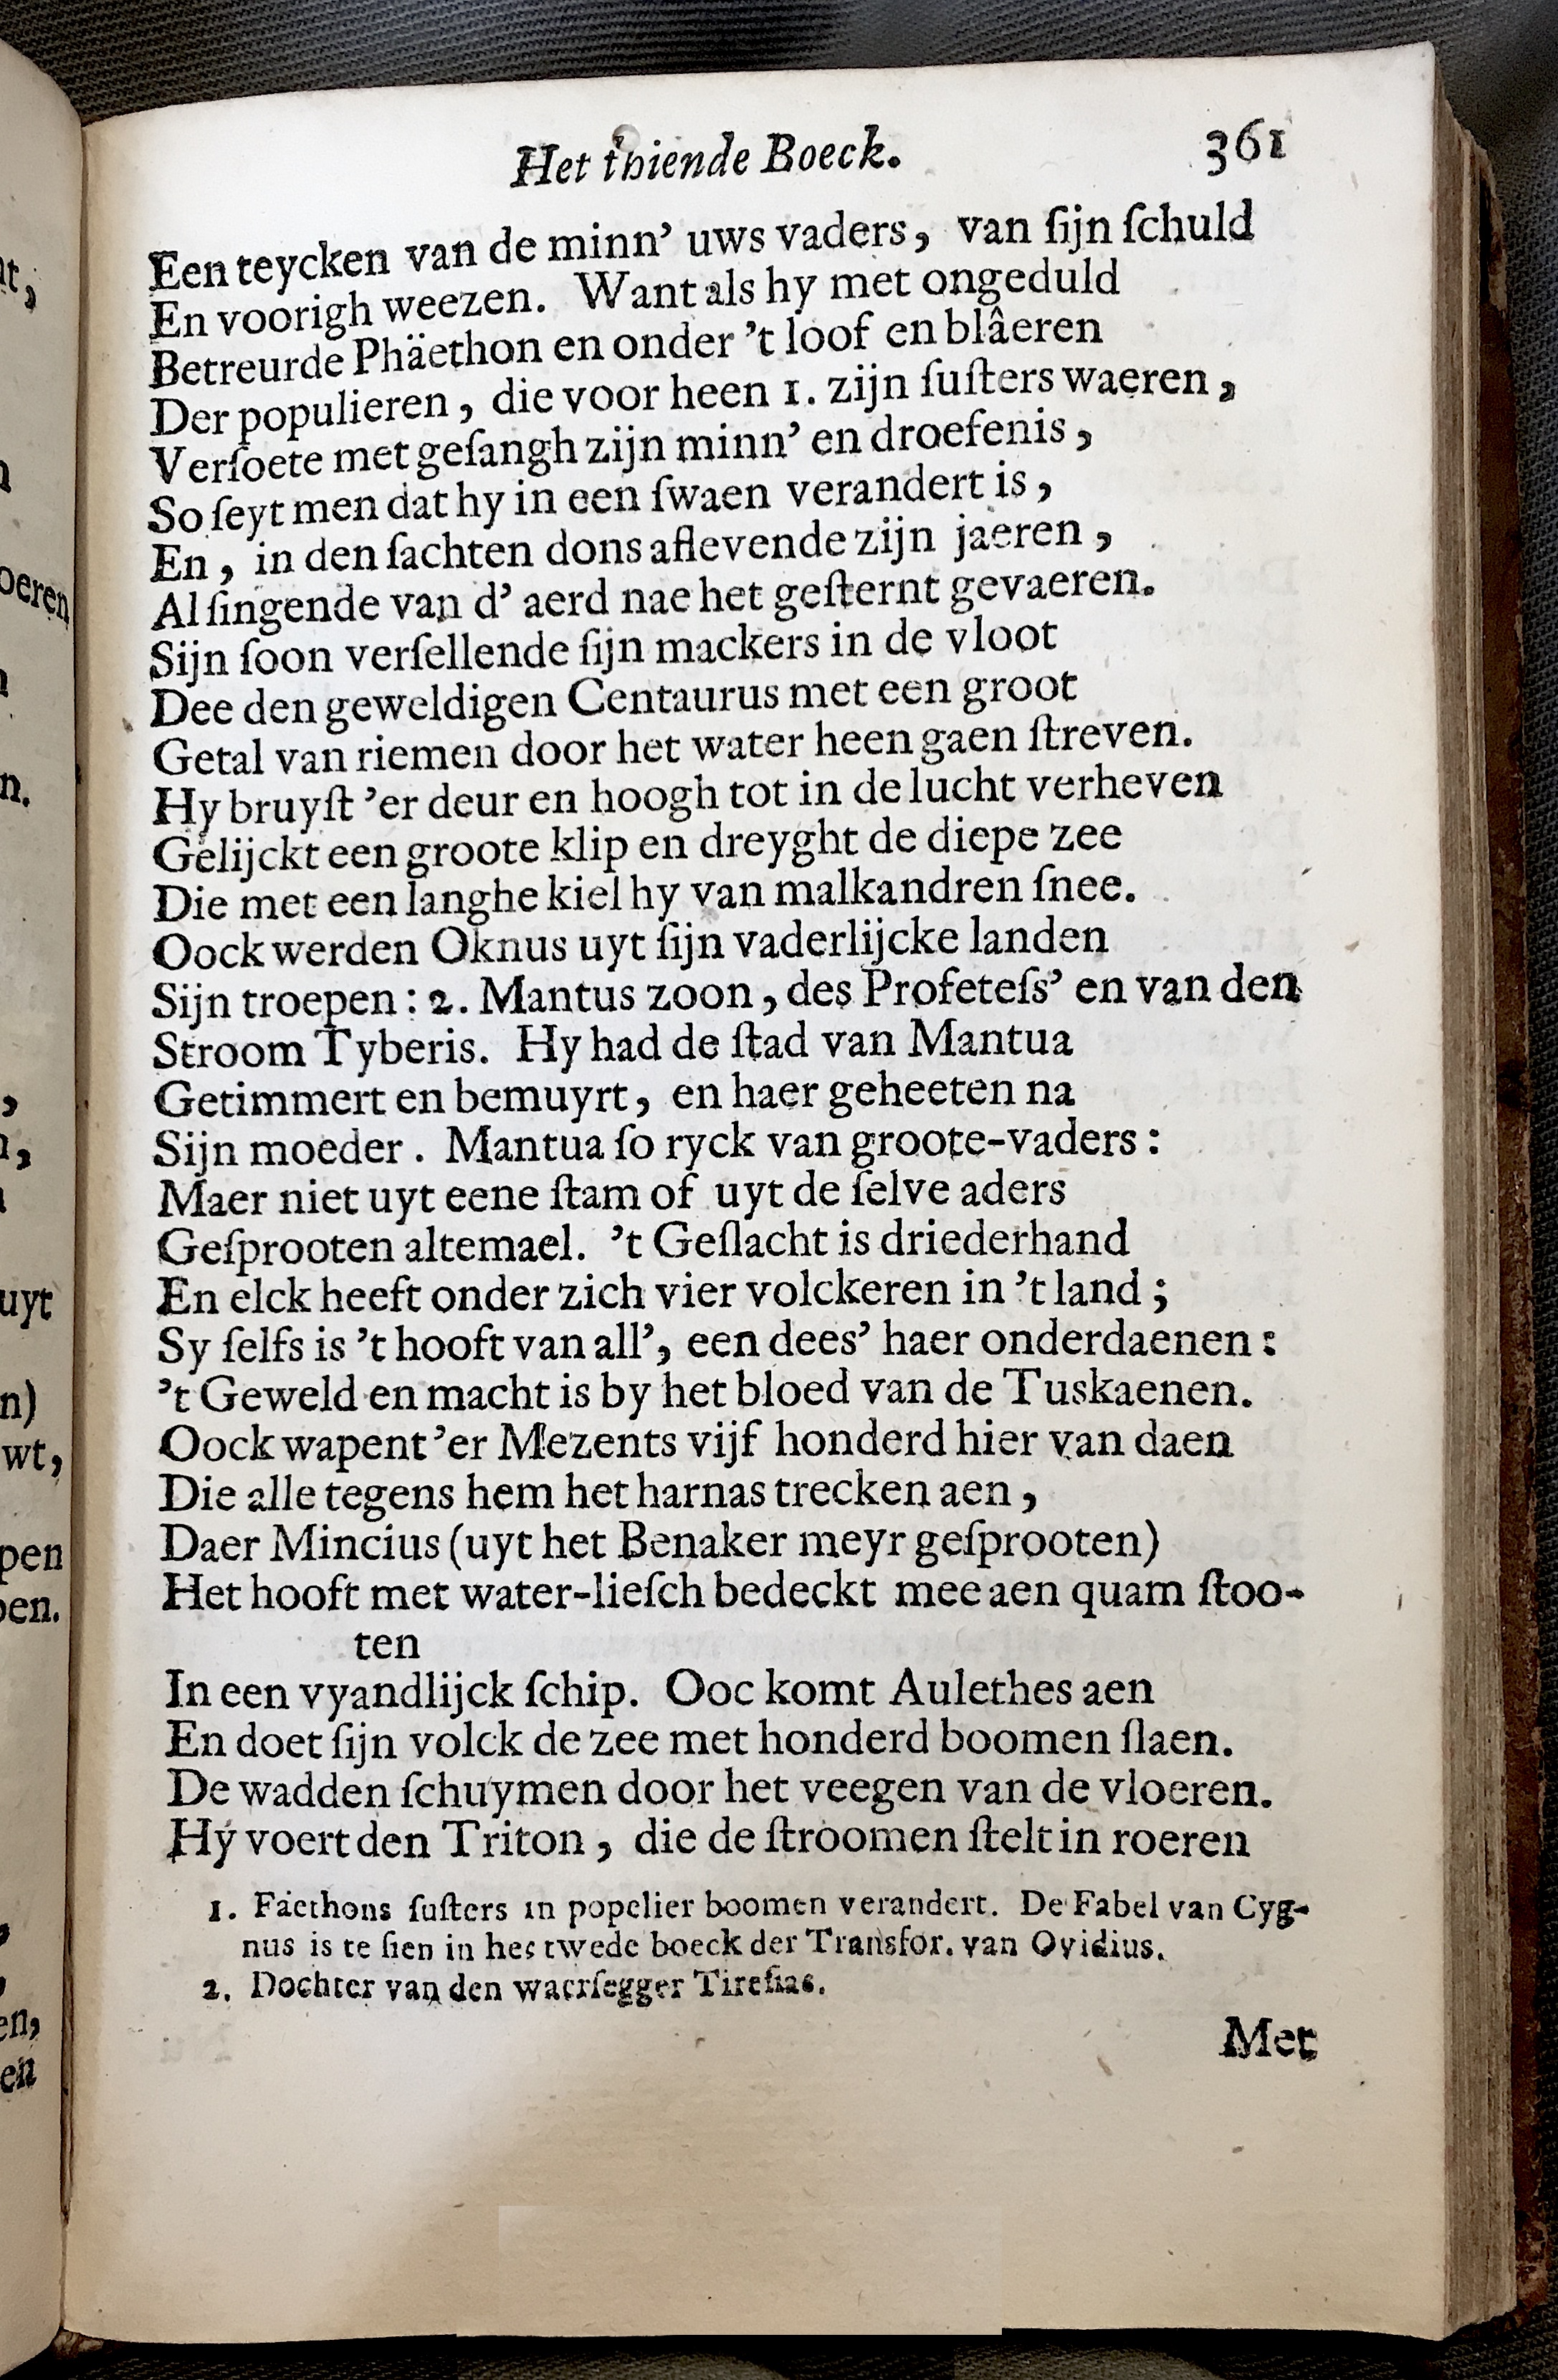 Het thiende Boeck. 361
Een teycken van de minn’ uws vaders, van ſijn ſchuld
En voorigh weezen. Want als hy met ongeduld
Betreurde Phäethon en onder ’t loof en blâeren
Der populieren, die voor heen 1. zijn ſuſters waeren,
Verſoete met geſangh zijn minn’ en droefenis,
So ſeyt men dat hy in een ſwaen verandert is,
En, in den ſachten dons aflevende zijn jaeren,
Al ſingende van d’ aerd nae het geſternt gevaeren.
Sijn ſoon verſellende ſijn mackers in de vloot
Dee den geweldigen Centaurus met een groot
Getal van riemen door het water heen gaen ſtreven.
Hy bruyſt ’er deur en hoogh tot in de lucht verheven
Gelijckt een groote klip en dreyght de diepe zee
Die met een langhe kiel hy van malkandren ſnee.
Oock werden Oknus uyt ſijn vaderlijcke landen
Sijn troepen: 2. Mantus zoon, des Profeteſs’ en van den
Stroom Tyberis. Hy had de ſtad van Mantua
Getimmert en bemuyrt, en haer geheeten na
Sijn moeder. Mantua ſo ryck van groote-vaders:
Maer niet uyt eene ſtam of uyt de ſelve aders
Geſprooten altemael. ’t Geſlacht is driederhand
En elck heeft onder zich vier volckeren in ’t land;
Sy ſelfs is ’t hooft van all’, een dees’ haer onderdaenen:
’t Geweld en macht is by het bloed van de Tuskaenen.
Oock wapent ’er Mezents vijf honderd hier van daen
Die alle tegens hem het harnas trecken aen,
Daer Mincius (uyt het Benaker meyr geſprooten)
Het hooft met water-lieſch bedeckt mee aen quam ſtoo-
ten
In een vyandlijck ſchip. Ooc komt Aulethes aen
En doet ſijn volck de zee met honderd boomen ſlaen.
De wadden ſchuymen door het veegen van de vloeren.
Hy voert den Triton, die de ſtroomen ſtelt in roeren
1. Fäethons ſuſters in popelier boomen verandert. De Fabel van Cyg-
nus is te ſien in het twede boeck der Transfor. van Ovidius.
2. Dochter van den waerſegger Tireſias.
Met